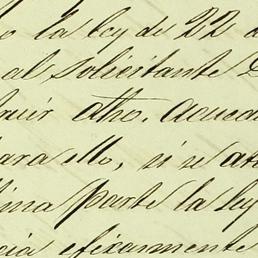 o la ley de 22 d
al solicitante D
ruir dho. acued
para ello, si se ati
tima parte la ley
cia eficazmente